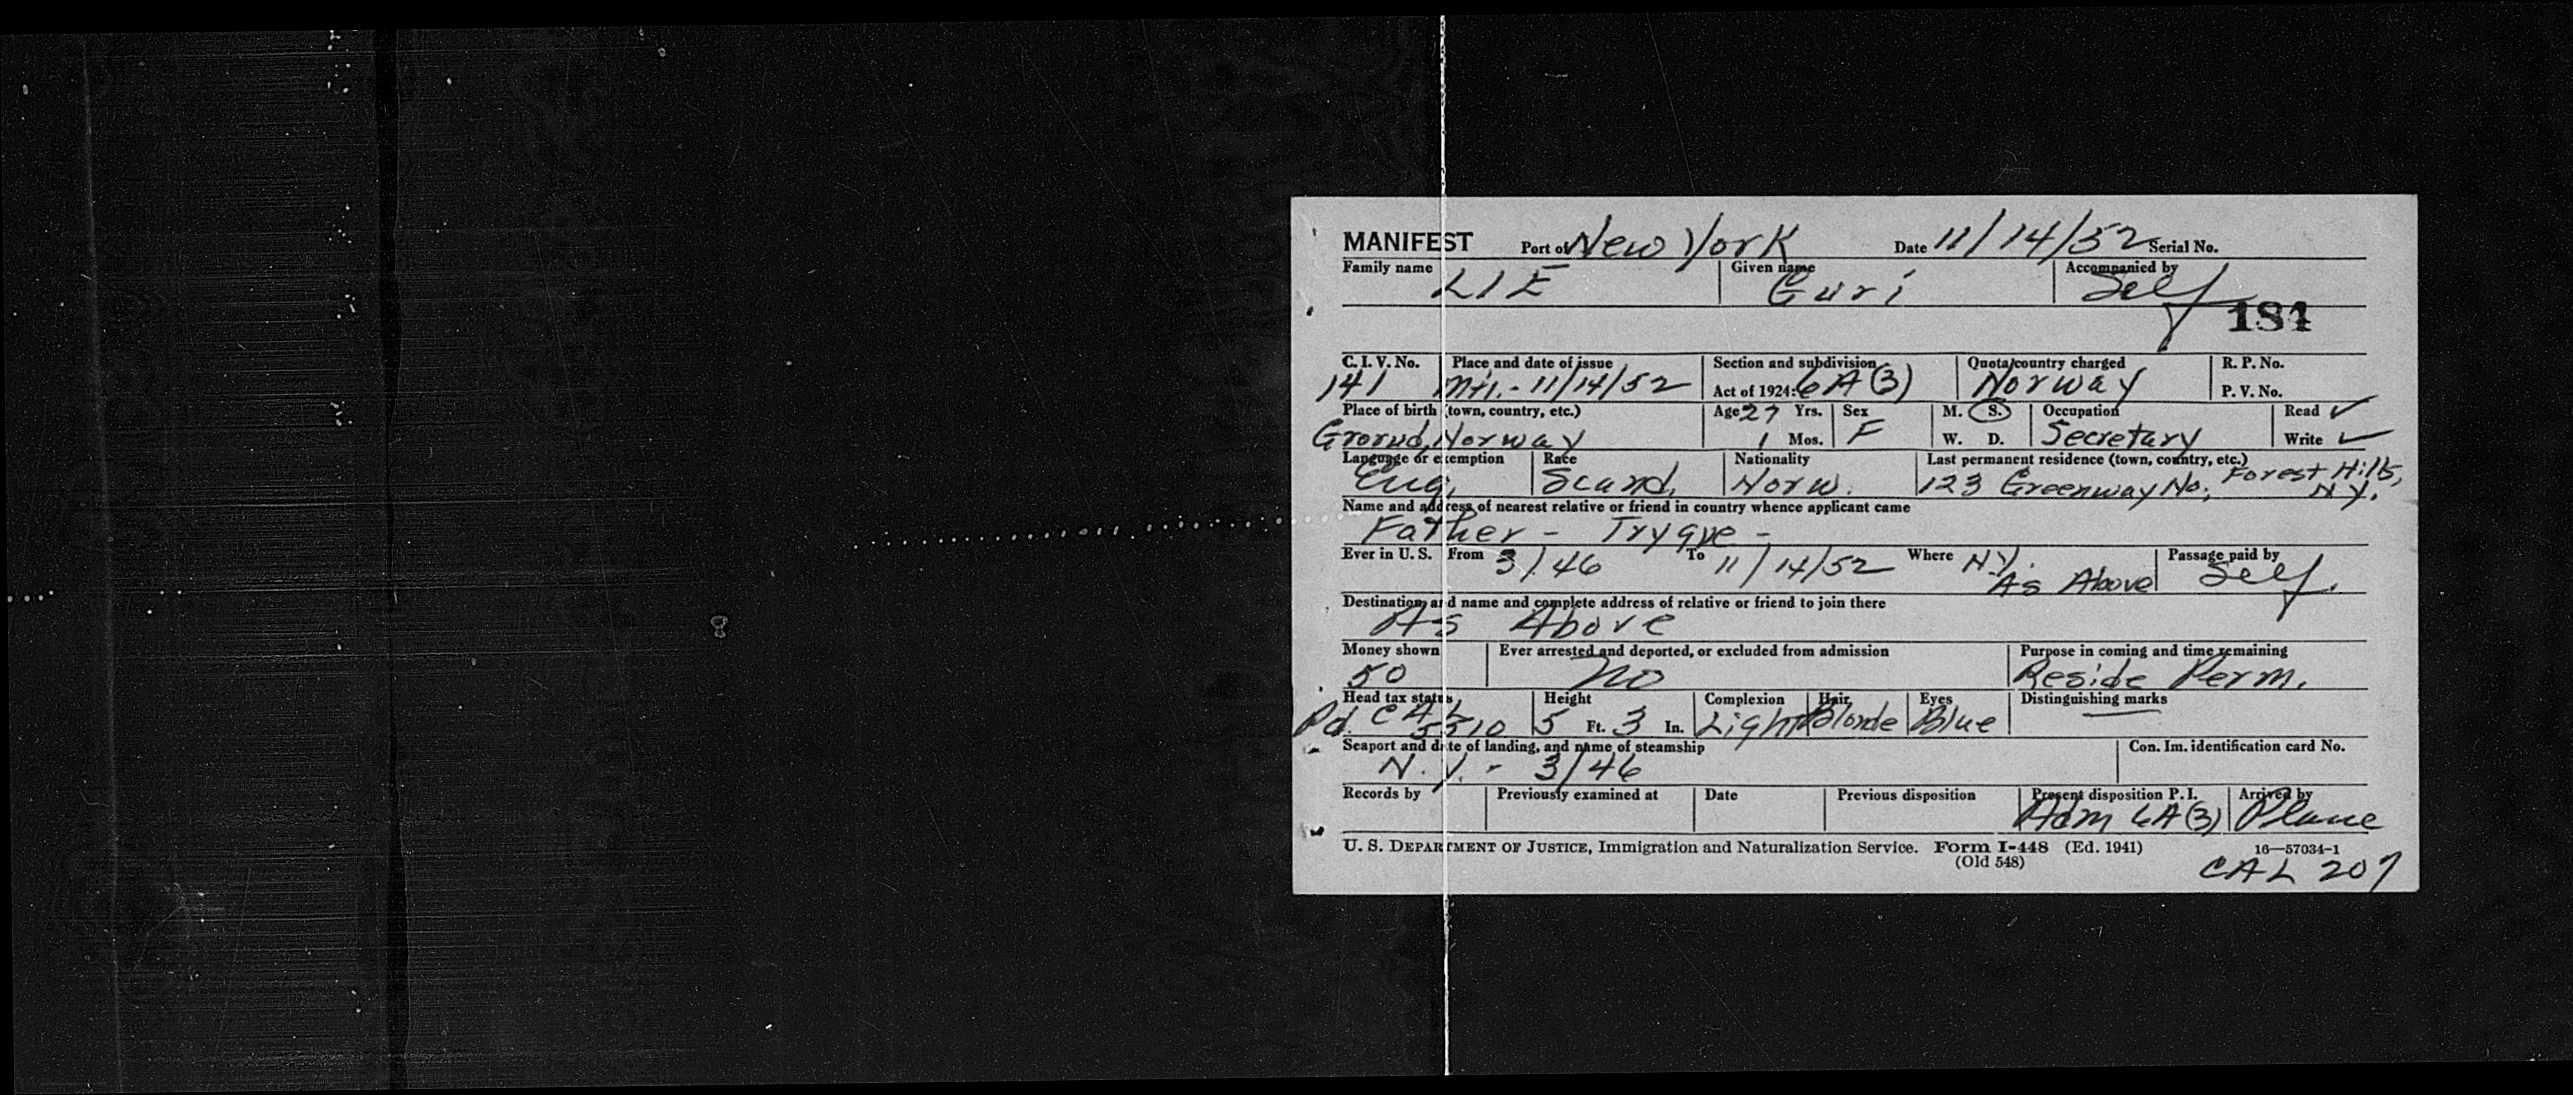 MANIFEST Port of New York Date 11/14/52 Serial No.
Family name LIE Given name Guri Accompanied by Self
184
C. I. V. No. 141 Place and date of issue Mtl. - 11/14/52 Section and subdivision Act of 1924: 6A(3) Quota country charged Norway R. P. No.
P. V. No.
Place of birth (town, country, etc.) Grorud, Norway Age 27 Yrs. 1 Mos. Sex F M. S. W. D. Occupation Secretary Read ✓ Write ✓
Language or exemption Eng. Race Scand. Nationality Norw. Last permanent residence (town, country, etc.) 123 Greenway No; Forest Hills, N.Y.
Name and address of nearest relative or friend in country whence applicant came
Father - Trygve -
Ever in U. S. From 3/46 To 11/14/52 Where N.Y. As Above Passage paid by Self.
Destination, and name and complete address of relative or friend to join there
As Above
Money shown 50 Ever arrested and deported, or excluded from admission No Purpose in coming and time remaining Reside Perm.
Head tax status Pd. CAL 5510 Height 5 Ft. 3 In. Complexion Light Hair Blonde Eyes Blue Distinguishing marks —
Seaport and date of landing, and name of steamship N.Y. - 3/46 Con. Im. identification card No.
Records by Previously examined at Date Previous disposition Present disposition P. I. Adm 6A(3) Arrived by Plane
U. S. DEPARTMENT OF JUSTICE, Immigration and Naturalization Service. Form I-448 (Ed. 1941) 16—57034-1
(Old 548)
CAL 207